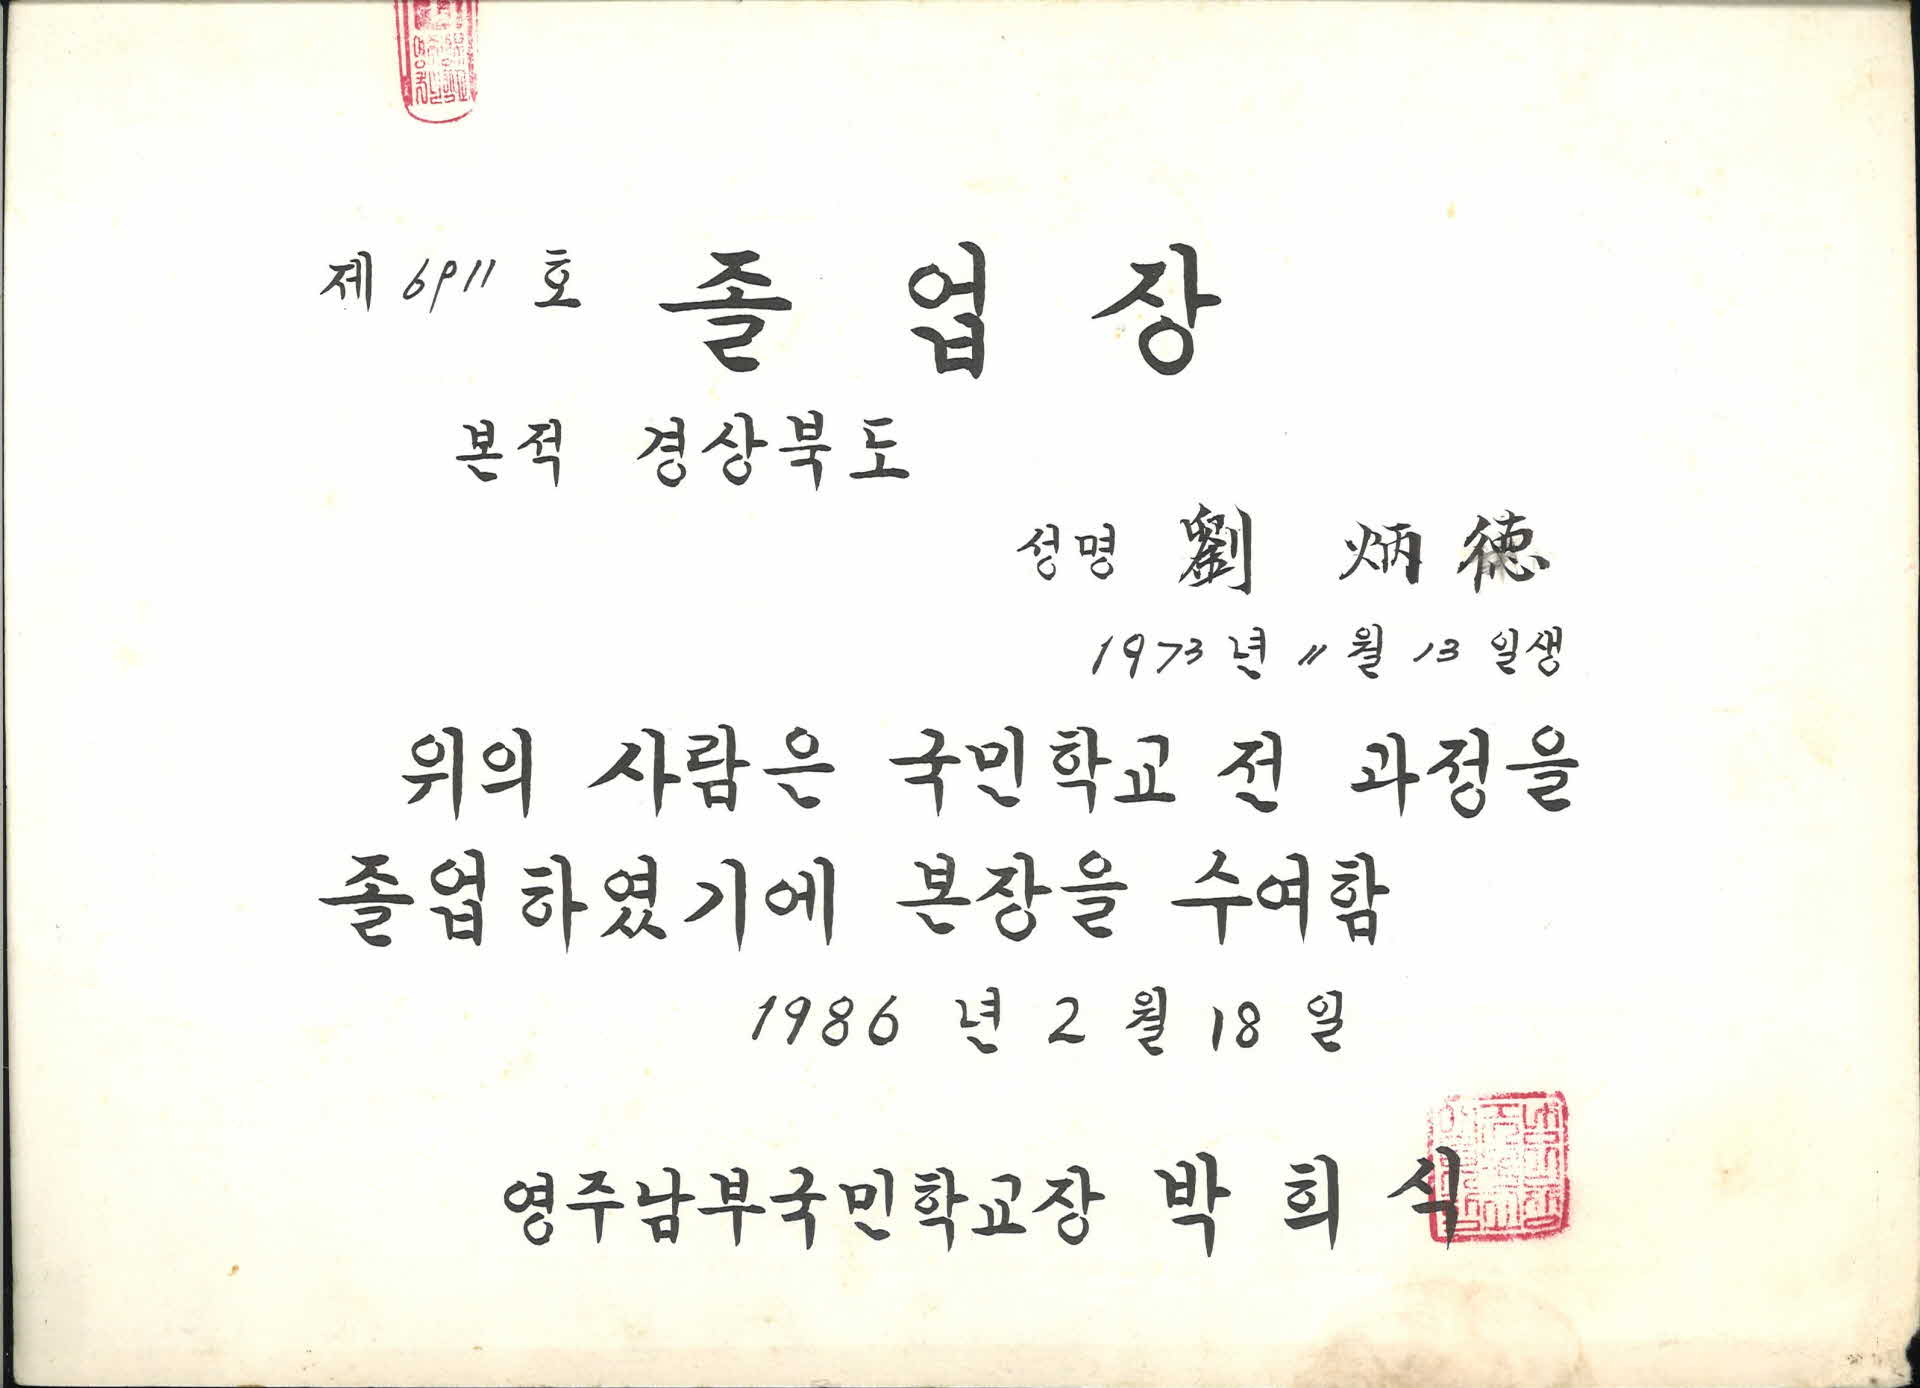 제 6911 호 졸 업 장
본적 경상북도
성명 劉 炳 德
1973 년 11 월 13 일생
위의 사람은 국민학교 전 과정을
졸업하였기에 본장을 수여함
1986 년 2 월 18 일
영주남부국민학교장 박 희 식